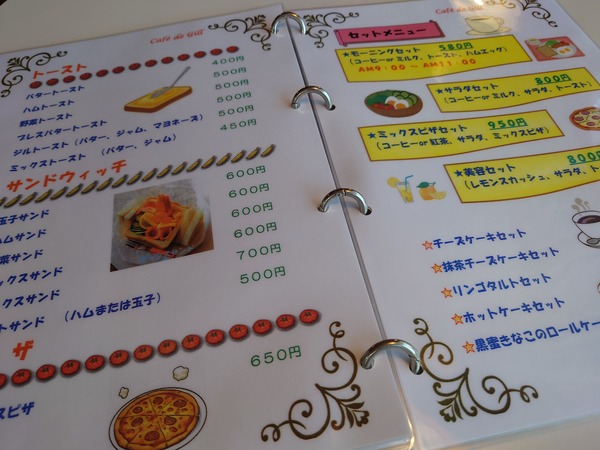 Café de Gill
トースト
バタートースト 400円
ハムトースト 500円
野菜トースト 500円
プレスバタートースト 500円
ジルトースト（バター、ジャム、マヨネーズ） 500円
ミックストースト （バター、ジャム） 450円
サンドウィッチ
玉子サンド 600円
ハムサンド 600円
菜サンド 600円
ックスサンド 600円
クスサンド 700円
トサンド （ハムまたは玉子） 500円
ザ
スピザ 650円
Café de Gill
セットメニュー
★モーニングセット 580円
（コーヒーorミルク、トースト、ハムエッグ）
AM9：00～AM11：00
★サラダセット 800円
（コーヒーorミルク、サラダ、トースト）
★ミックスピザセット 950円
（コーヒーor紅茶、サラダ、ミックスピザ）
★美容セット 800円
（レモンスカッシュ、サラダ、ト
☆チーズケーキセット
☆抹茶チーズケーキセット
☆リンゴタルトセット
☆ホットケーキセット
☆黒蜜きなこのロールケー